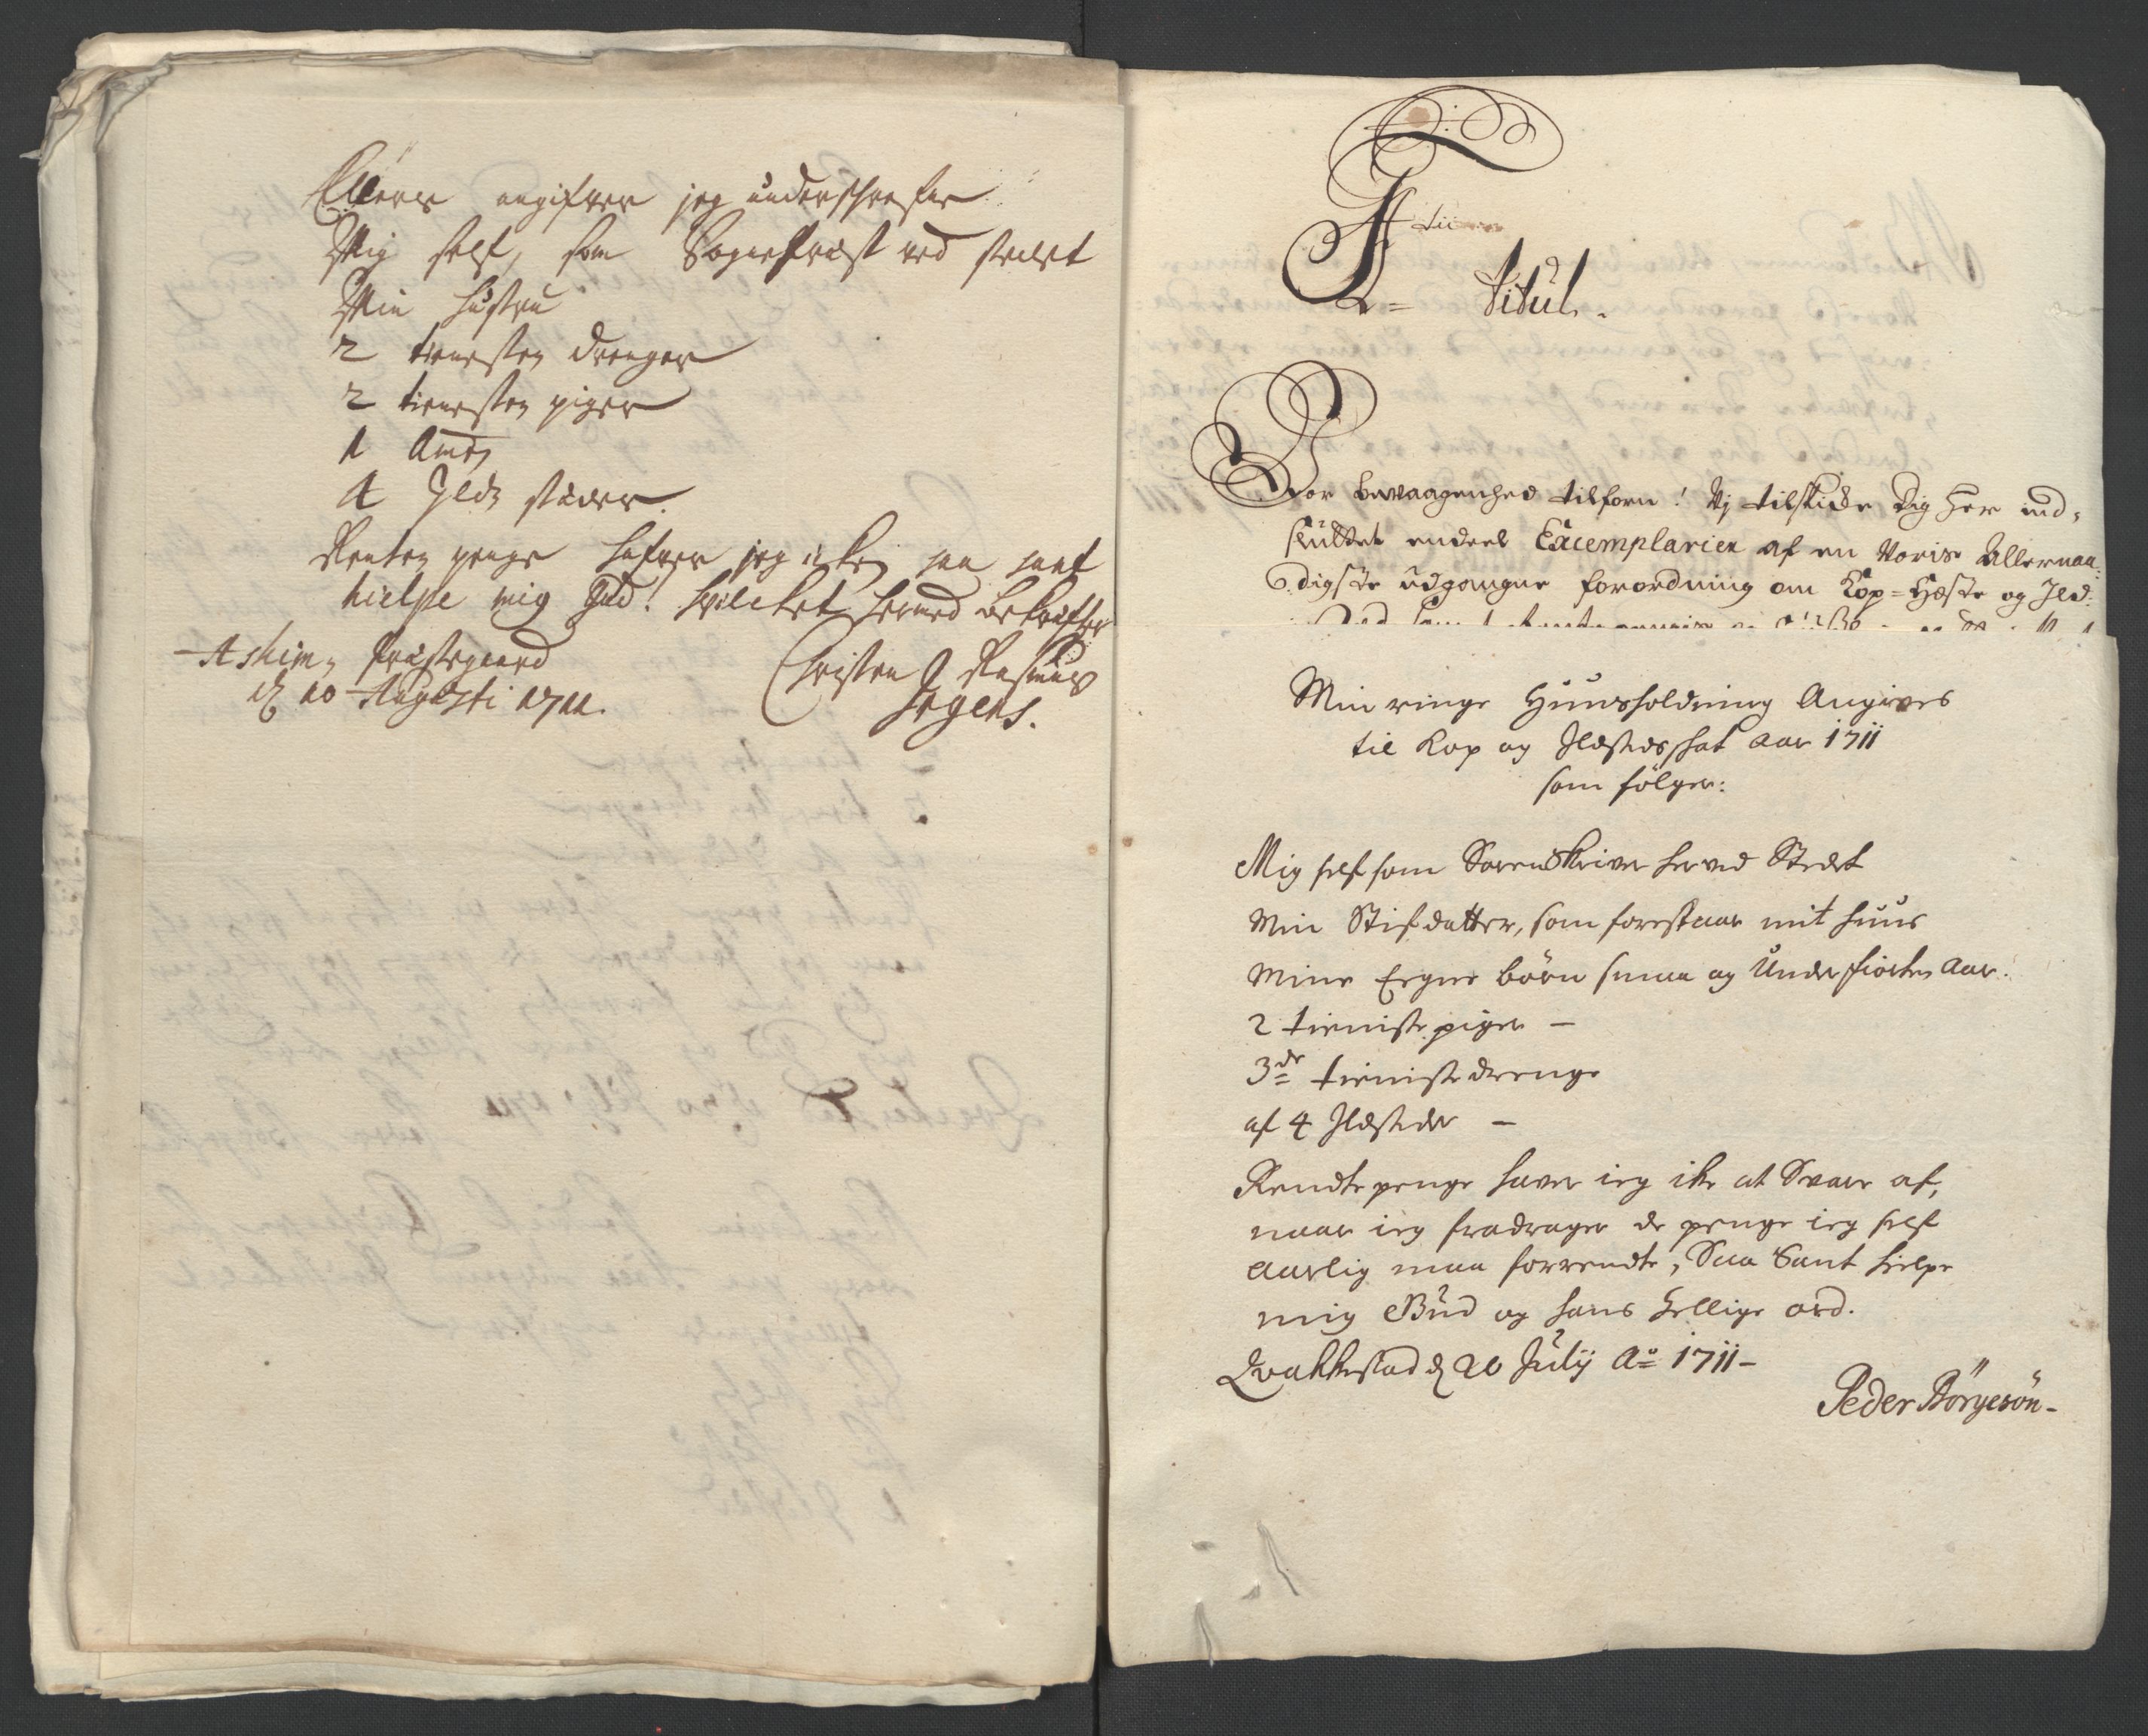 Ellers angifver jeg underschrefne
Mig self, som Sogneprest ved stedet
Min hustru
2 tienisten drenger
2 tienesten piger
1 Amme
4 Ilds stæder.
Renten penge hafver jeg icke, saa sant
hielpe mig Gud! hvilcket hermed bekrefter
Askim Præstegaard
d 10 Augusti 1711.
Christen Rasmus
Jegers.
F 4
tii
Titul.
Vor bevaagenhed tilforn! Vj tilskicke dig her ind,
sluttet endeel Excemplarier af en Voris Allernaa:
digste udgangne forordning om Kop=Hæste og Ild:
Min ringe Huusholdning Angives
til Kop og Ildstedsskat aar 1711
som følger:
Mig self som Sorenskriver her ved Stedet
Min Stifdatter, som forestaar mit huus
Mine Egne børn smaa og Under fiorten Aar.
2 tieniste piger —
3de tieniste drenge
af 4 Ildsteder —
Rendte penge haver ieg ike at Svare af,
naar ieg fradrager de penge ieg self
aarlig maa forrendte, Saa Sant hielpe
mig Gud og hans hellige ord.
Qvakkestad d 20 Julij Ao 1711 —
Peder Börgesön —